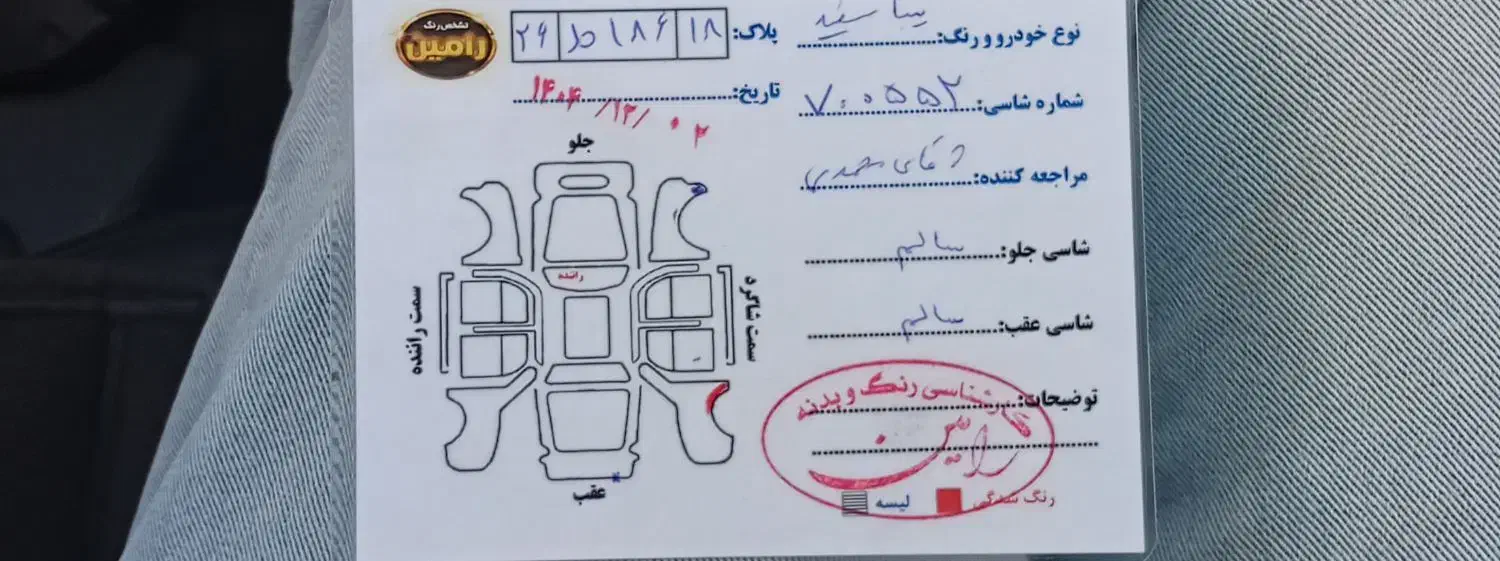 تشخیص رنگ
رامین
نوع خودرو و رنگ: تیبا سفید
پلاک: ۱۸ ۱۸۶ ط ۲۶
شماره شاسی: ۷۰۰۵۵۲
تاریخ: ۱۴۰۴/۱۲/۰۲
مراجعه کننده: آقای محمدی
شاسی جلو: سالم
شاسی عقب: سالم
توضیحات:
جلو
راننده
سمت راننده
سمت شاگرد
عقب
کارشناسی رنگ و بدنه
رامین
رنگ شدگی
لیسه